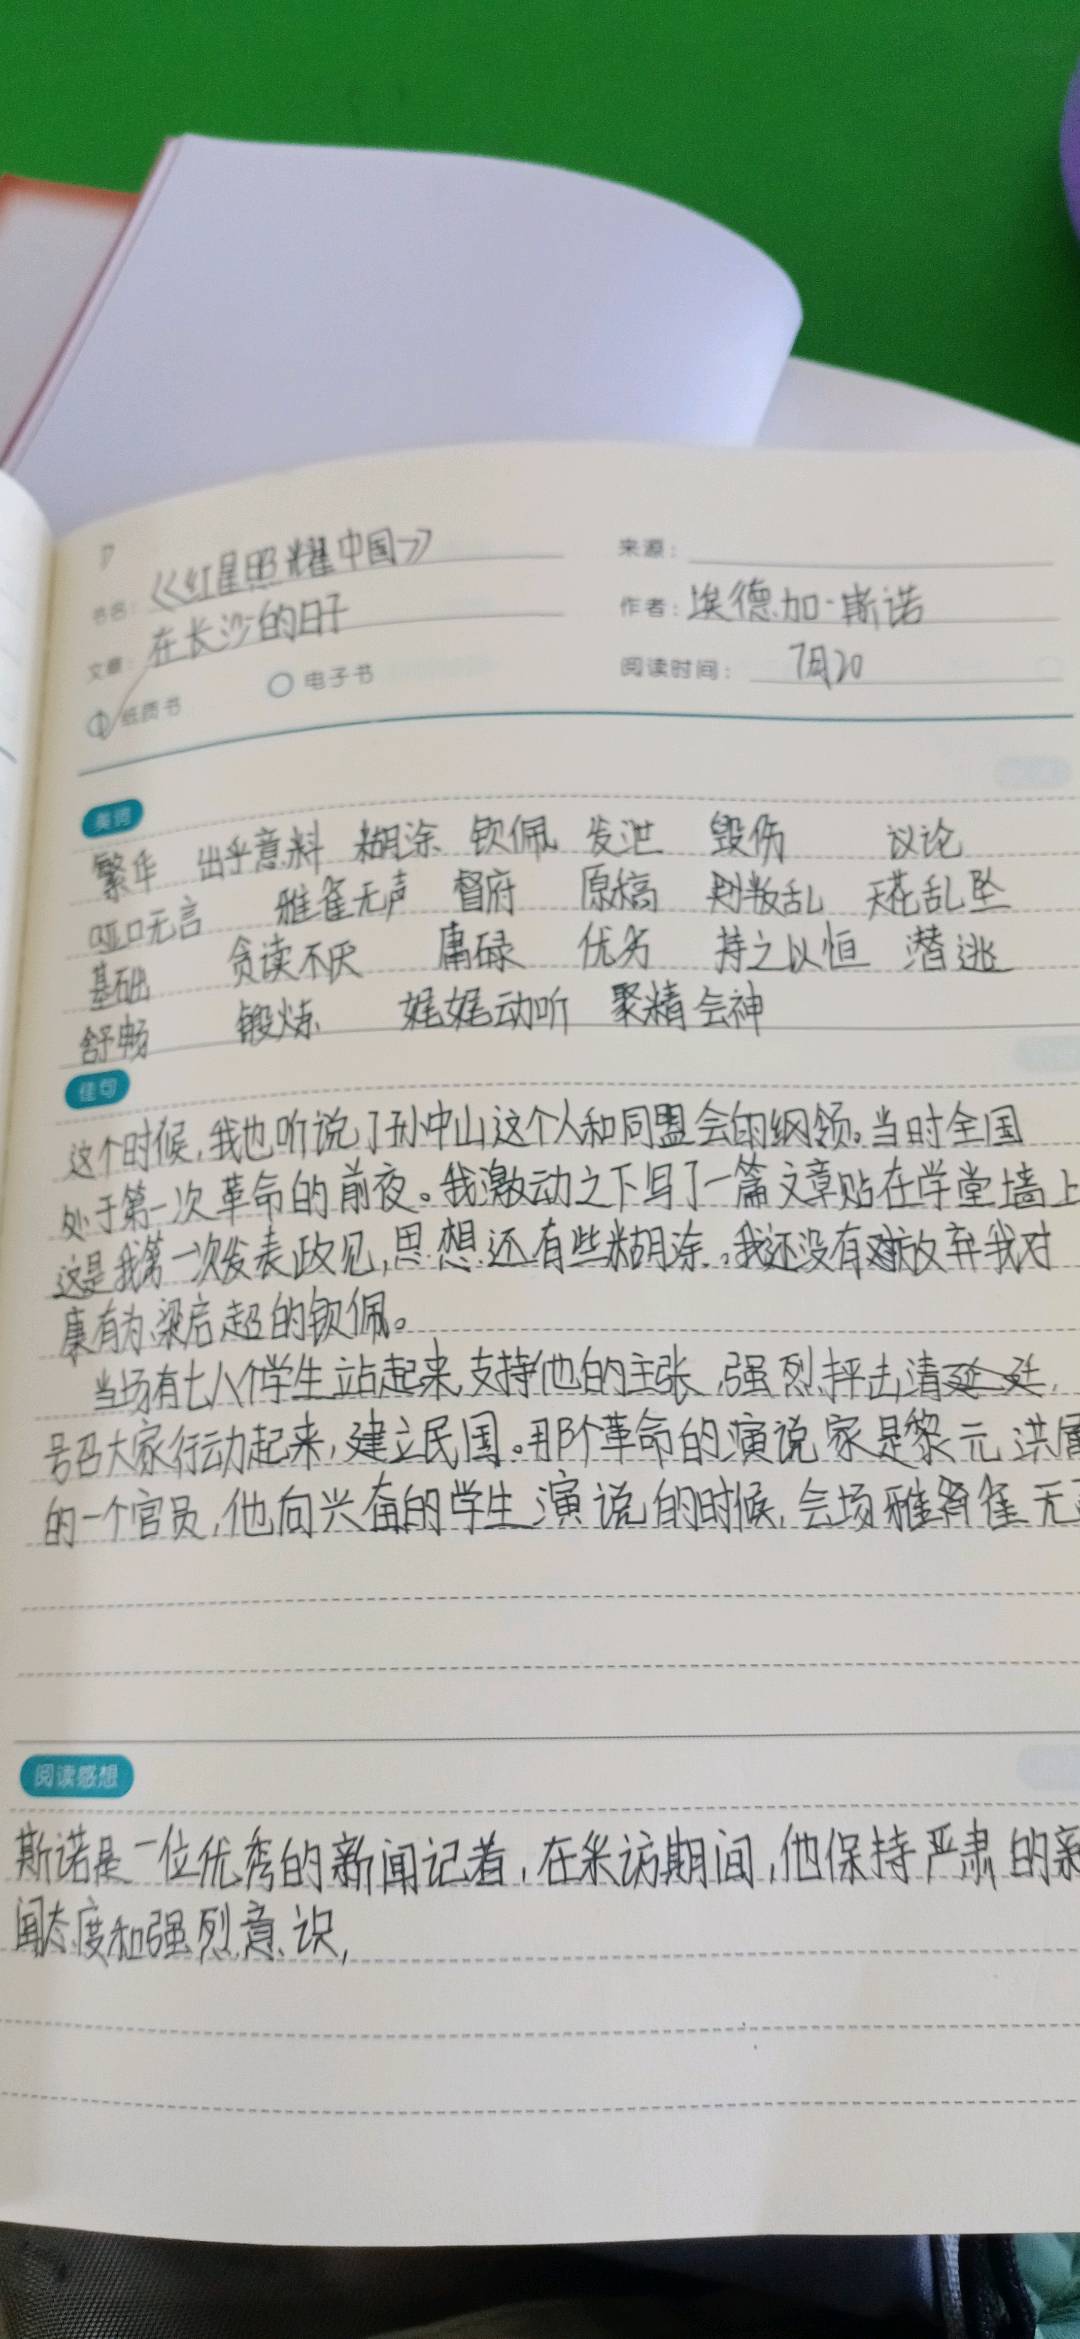 书名：《红星照耀中国》
来源：
文章：在长沙的日子
作者：埃德加·斯诺
纸质书 电子书
阅读时间：7月20
美词
繁华 出乎意料 糊涂 钦佩 发泄 毁伤 议论
哑口无言 雅雀无声 督府 原稿 叛乱 天花乱坠
基础 贪读不厌 庸碌 优劣 持之以恒 潜逃
舒畅 锻炼 娓娓动听 聚精会神
佳句
这个时候,我也听说了孙中山这个人和同盟会的纲领。当时全国
处于第一次革命的前夜。我激动之下写了一篇文章贴在学堂墙上
这是我第一次发表政见,思想还有些糊涂.,我还没有放弃我对
康有为、梁启超的钦佩。
当场有七八个学生站起来,支持他的主张,强烈抨击,清廷,
号召大家行动起来,建立民国。那个革命的演说家是黎元洪属
的一个官员,他向兴奋的学生演说的时候,会场雅雀无
阅读感想
斯诺是一位优秀的新闻记者,在采访期间,他保持严肃的新
闻态度和强烈意识,